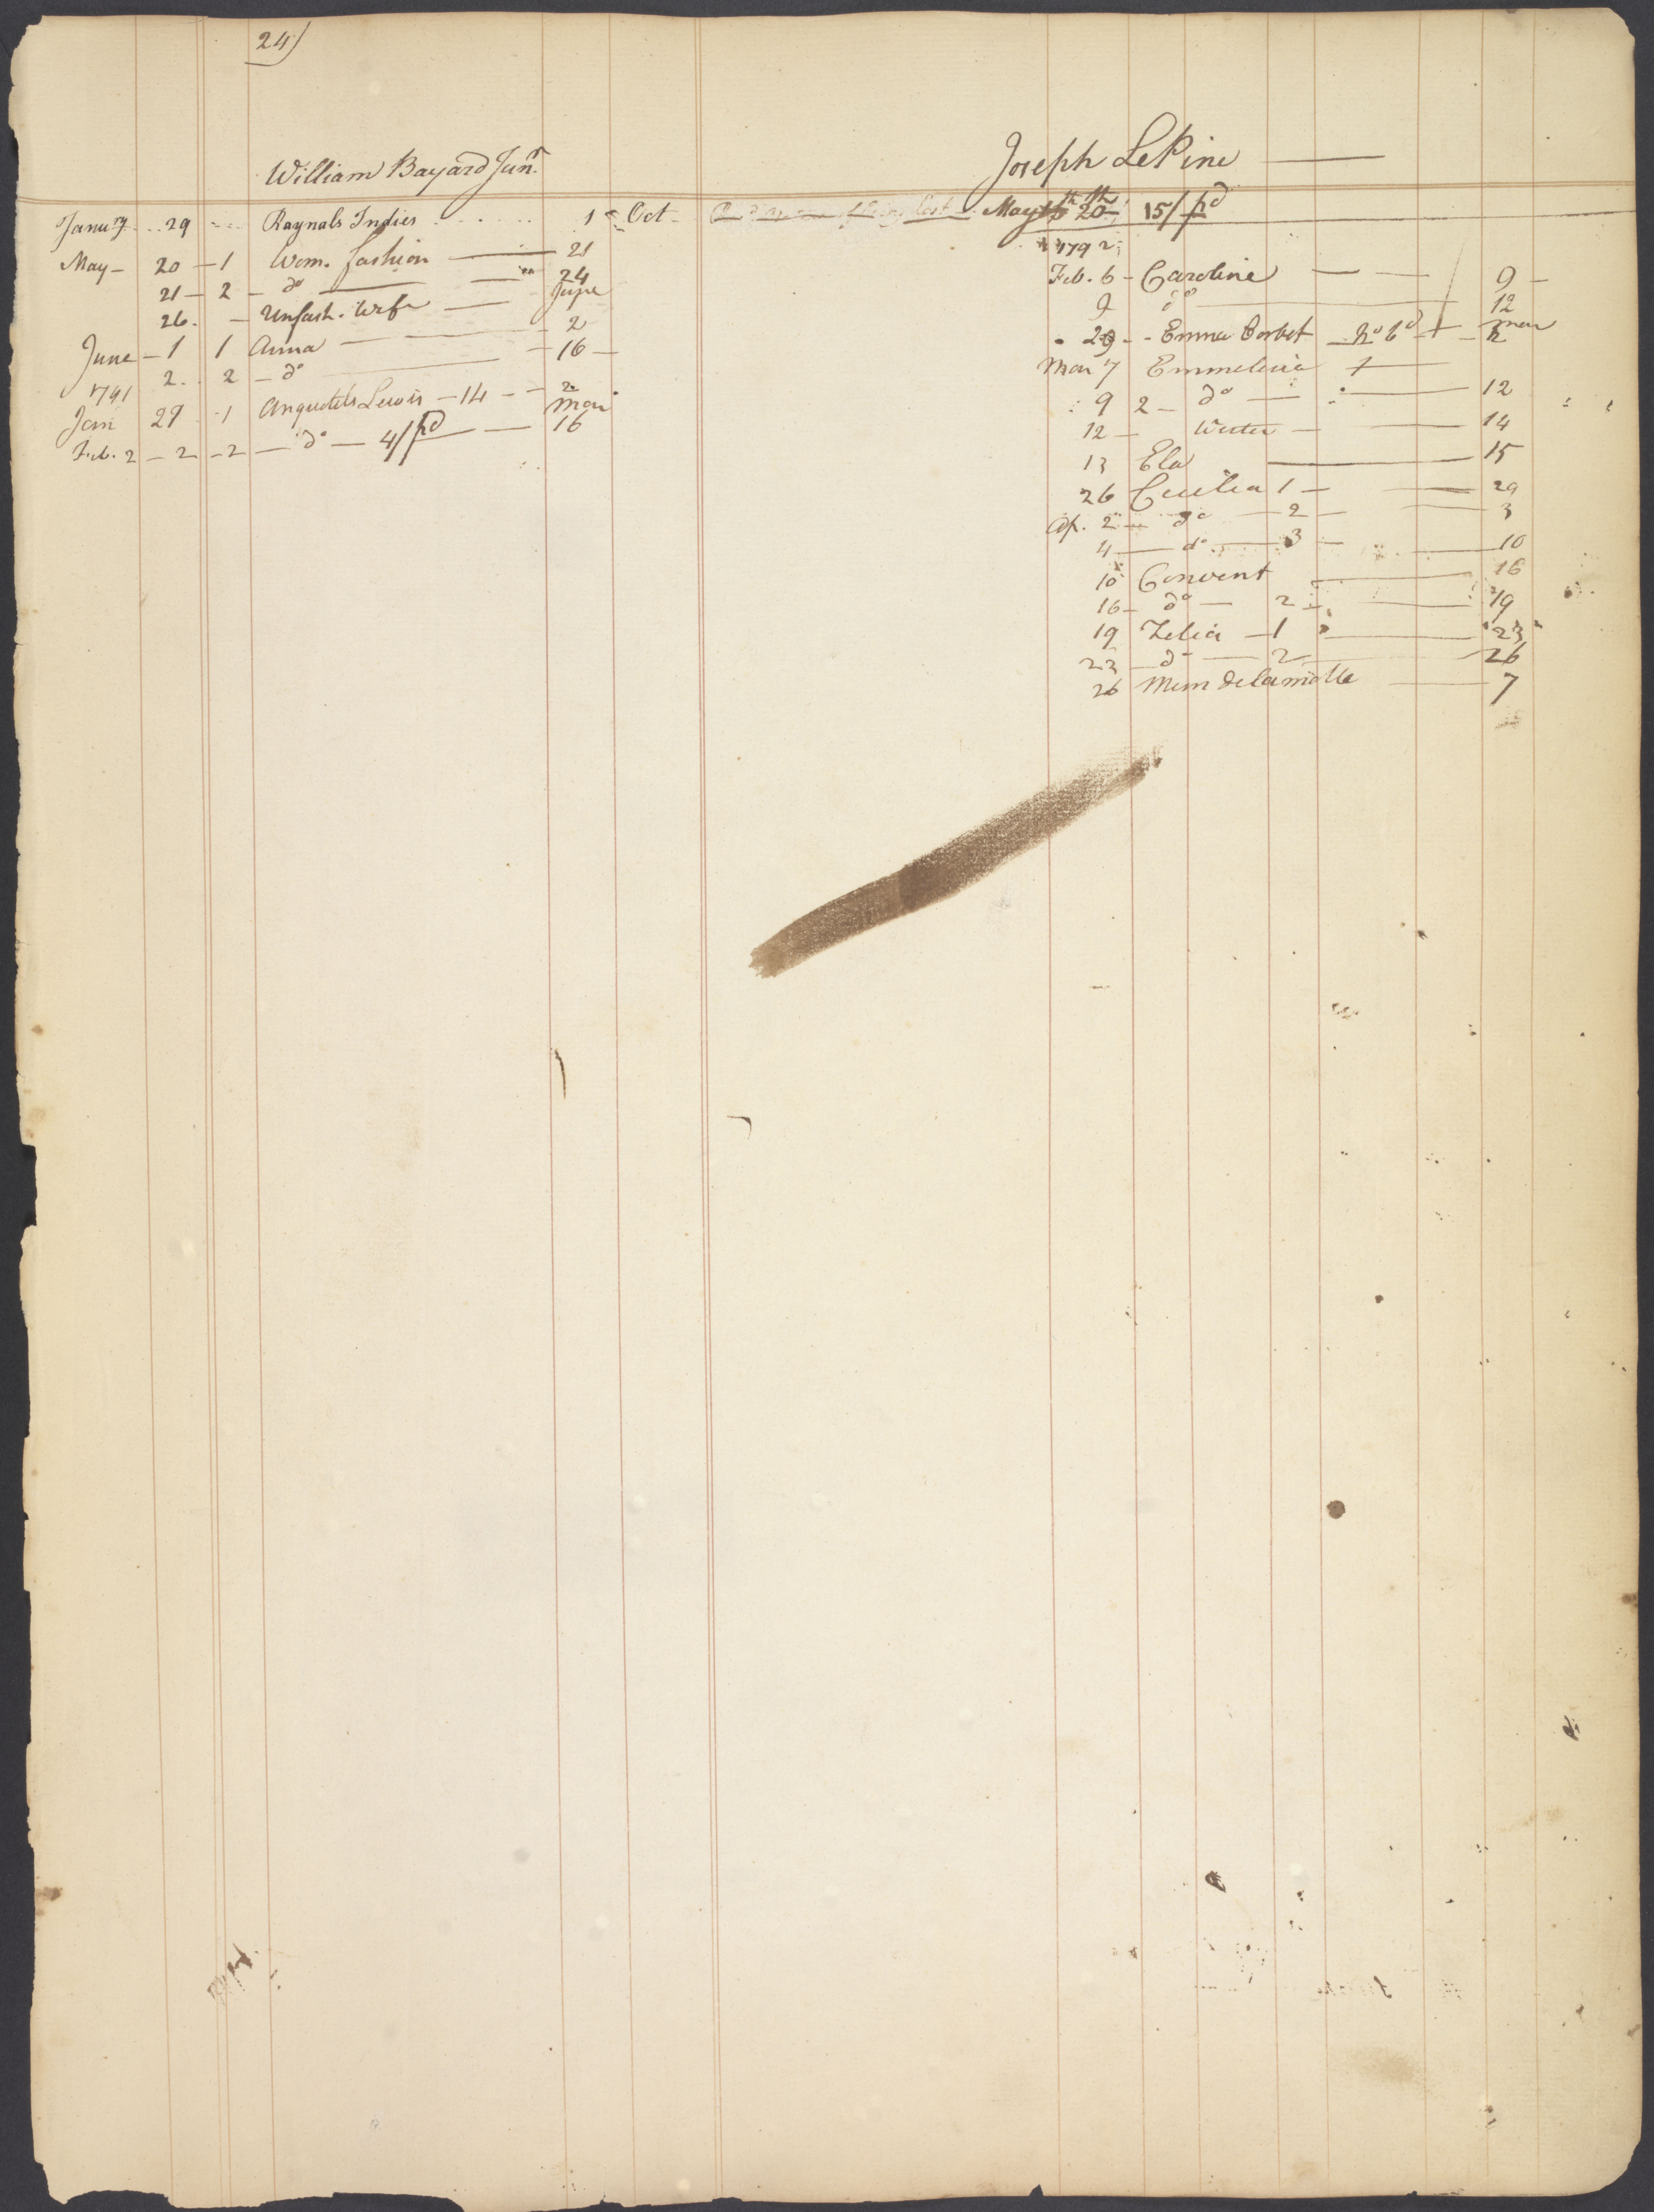 24)
William Bayard Junr.
Janury 29 Raynals Indies 1st Oct
May - 20 - 1 Wom. fashion 21
21 - 2 - do 24
26. - Unfash. Wife June 2
June - 1 1 Anna
2. 2 - do 16 -
1791
Jan 29 1 Anquetels Lewis - 14 - 2
Feb. 2 - 2 - 2 - do - 4/ pd Mar 16
Joseph LePine
May 20th 15/ pd
1792
Feb. 6 - Caroline 9 -
9 do 12
29 - Emma Corbet No 6d Mar
Mar 7 Emmelina
9 2 - do 12
12 - Werter 14
13 Ela 15
26 Cecilia 1 - 29
Ap. 2 - do - 2 - 3
4 - do - 3 - 10
10 Convent 16
16 - do - 2 - 19
19 Zelia - 1 23
23 - do - 2 26
26 Mem de la motte 7